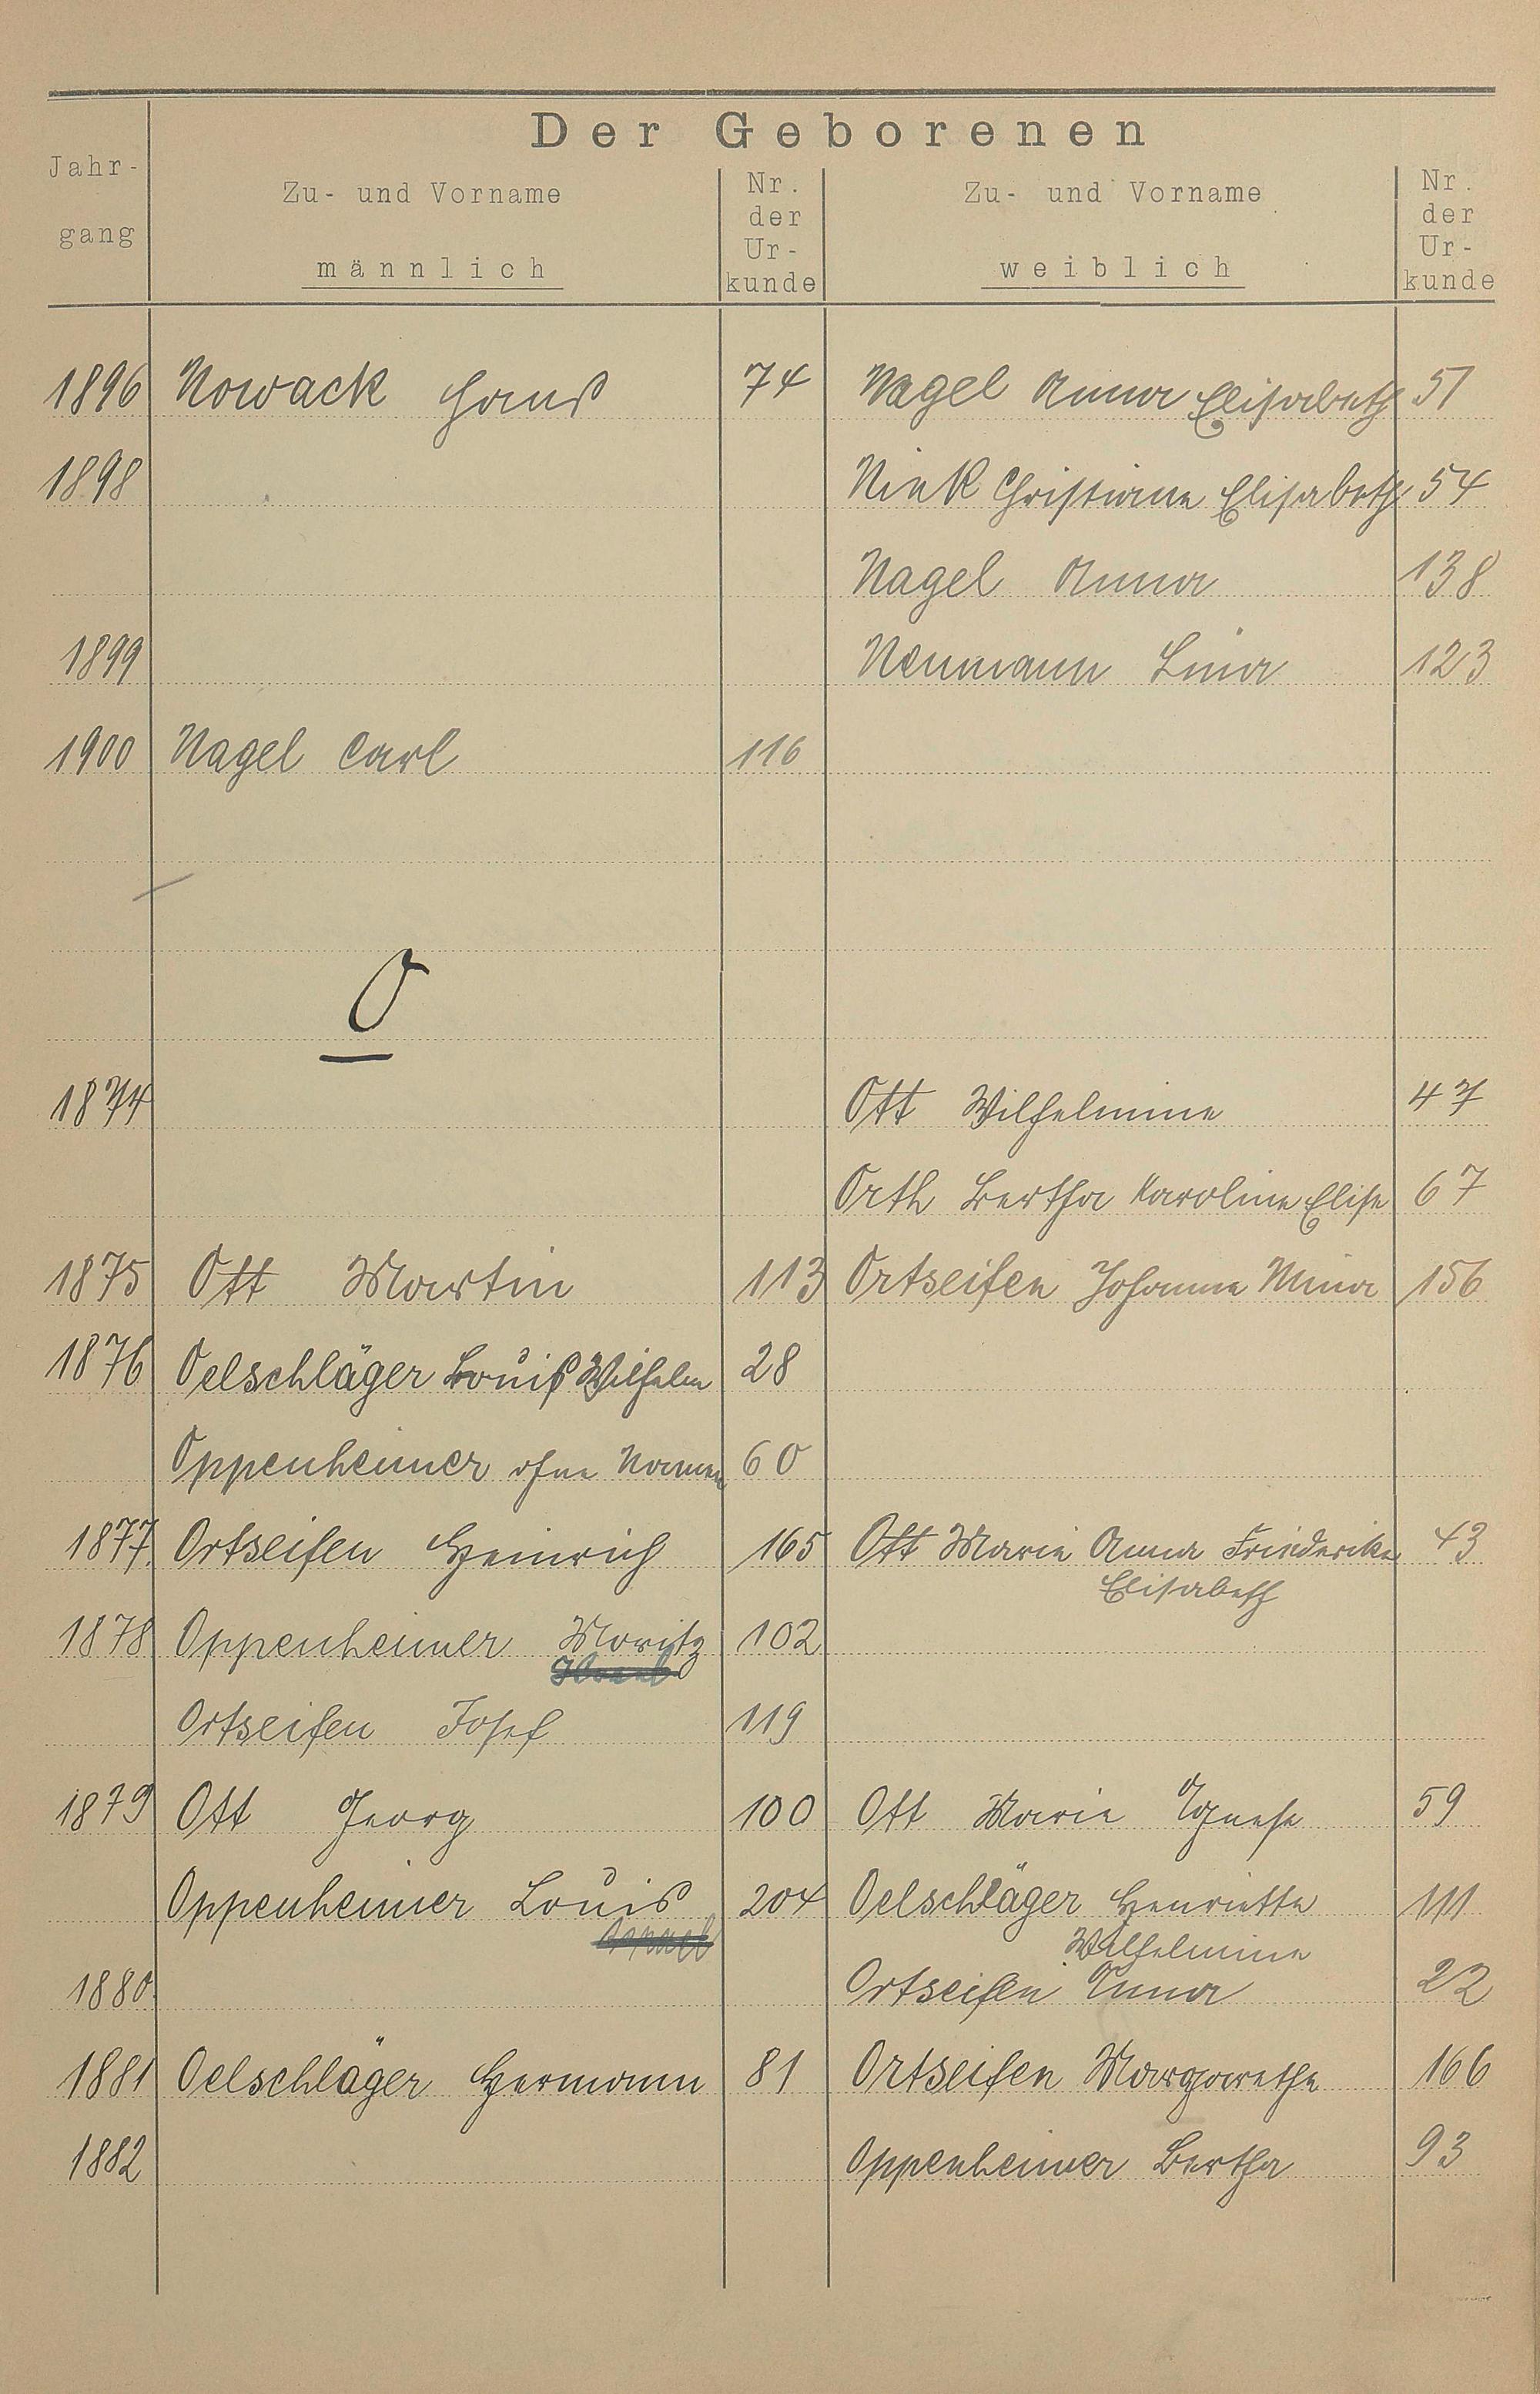 Der Geborenen
Jahr-
gang
Zu- und Vorname
männlich
Nr.
der
Ur-
kunde
Zu- und Vorname
weiblich
Nr.
der
Ur-
kunde
1896 Nowack Hans 74 Nagel Anna Elisabeth 51
1898 Nink Christiane Elisabeth 54
Nagel Anna 138
1899 Neumann Lina 123
1900 Nagel Carl 116
O
1874 Ott Wilhelmine 47
Orth Bertha Karoline Elise 67
1875 Ott Martin 113 Ortseifen Johanna Mina 156
1876 Oelschläger Louis Wilhelm 28
Oppenheimer ohne Namen 60
1877 Ortseifen Heinrich 165 Ott Marie Anna Friederike 43
Elisabeth
1878 Oppenheimer Moritz 102
Israel
Ortseifen Josef 119
1879 Ott Georg 100 Ott Marie Agnese 59
Oppenheimer Louis 204 Oelschläger Henriette 111
Israel Wilhelmine
1880 Ortseifen Anna 22
1881 Oelschläger Hermann 81 Ortseifen Margarethe 166
1882 Oppenheimer Bertha 93